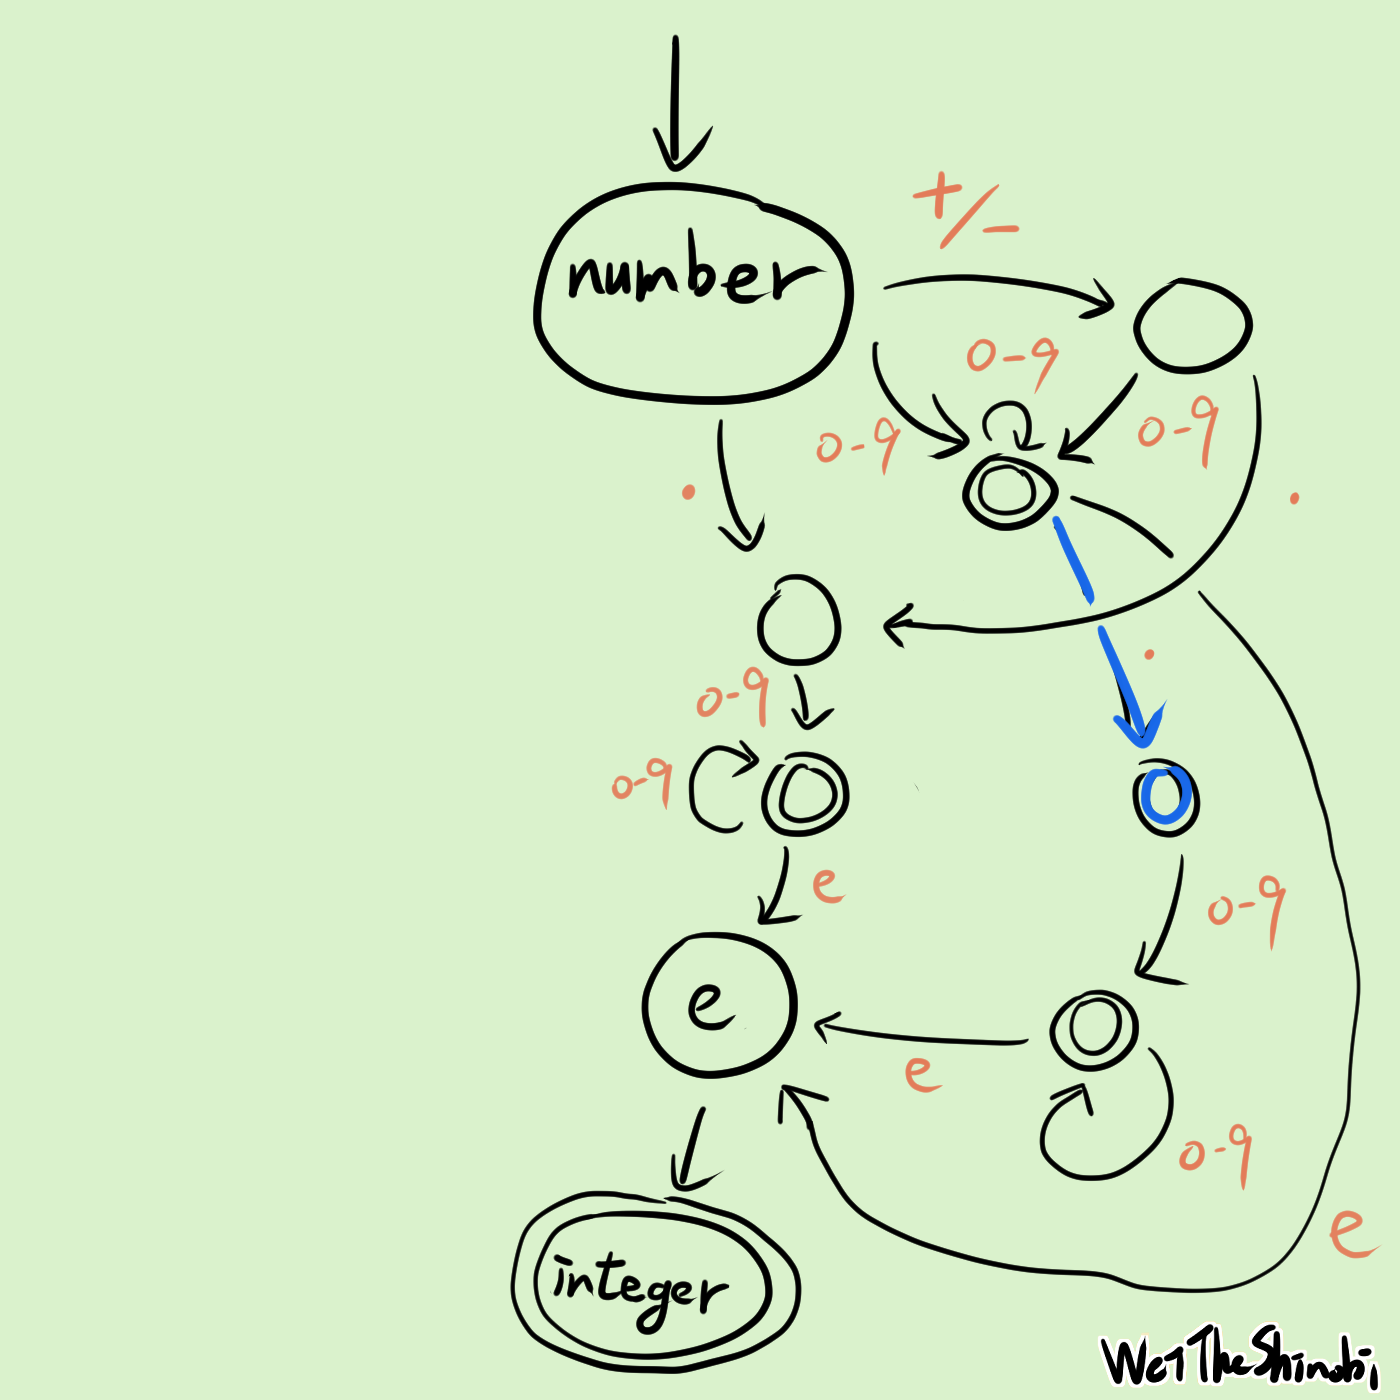 +/-
number
0-9
0-9
0-9
.
.
.
0-9
0-9
e
0-9
e
e
0-9
e
integer
WetTheShinobi